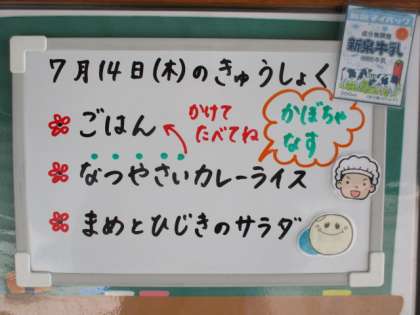 7月14日(木)のきゅうしょく
ごはん
かけて
たべてね
かぼちゃ
なす
なつやさいカレーライス
まめとひじきのサラダ
新泉牛乳